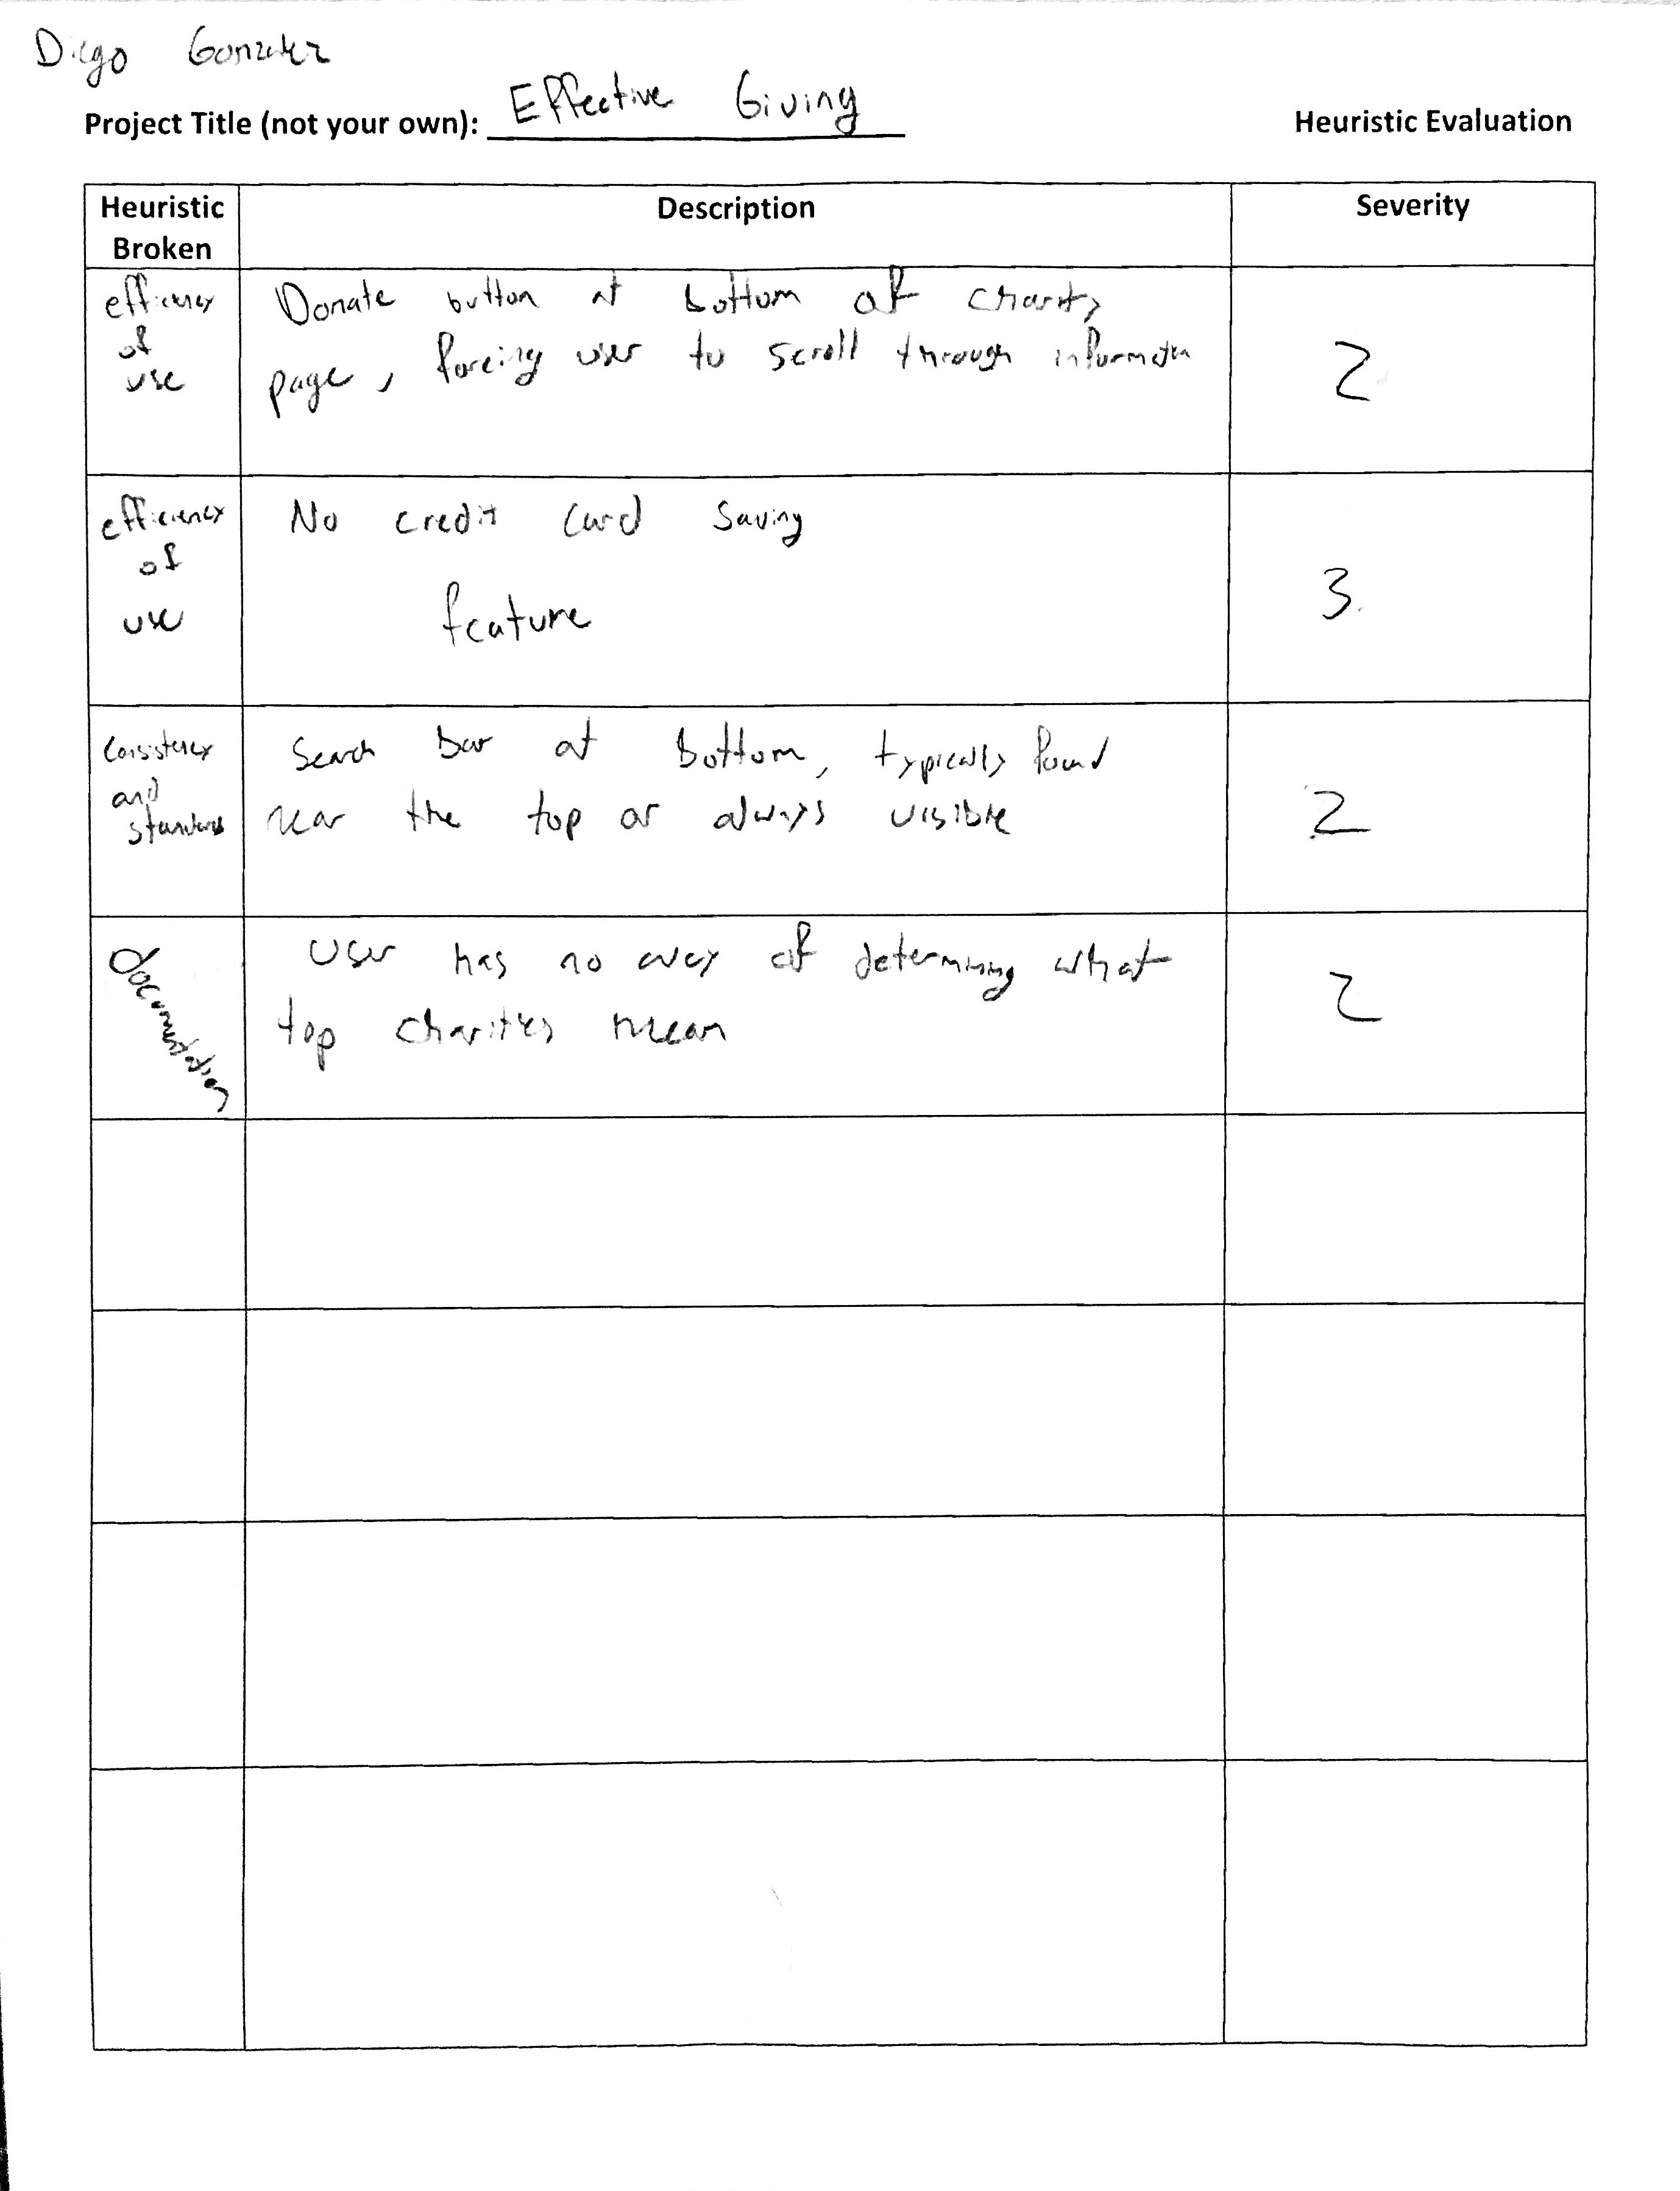 Diego Gonzalez
Project Title (not your own): Effective Giving
Heuristic Evaluation
Heuristic Broken
Description
Severity
efficiency
of
use
Donate button at bottom of charity
page, forcing user to scroll through information
2
efficiency
of
use
No credit card saving
feature
3
Consistency
and
standards
Search bar at bottom, typically found
near the top or always visible
2
documentation
User has no way of determining what
top charities mean
2